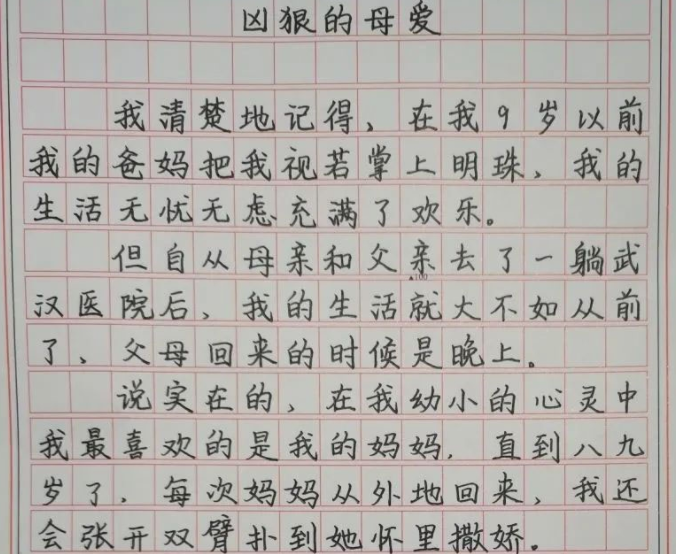 凶狠的母爱
我清楚地记得，在我9岁以前
我的爸妈把我视若掌上明珠，我的
生活无忧无虑充满了欢乐。
但自从母亲和父亲去了一躺武
▲100
汉医院后，我的生活就大不如从前
了，父母回来的时候是晚上。
说实在的，在我幼小的心灵中
我最喜欢的是我的妈妈，直到八九
岁了，每次妈妈从外地回来，我还
会张开双臂扑到她怀里撒娇。